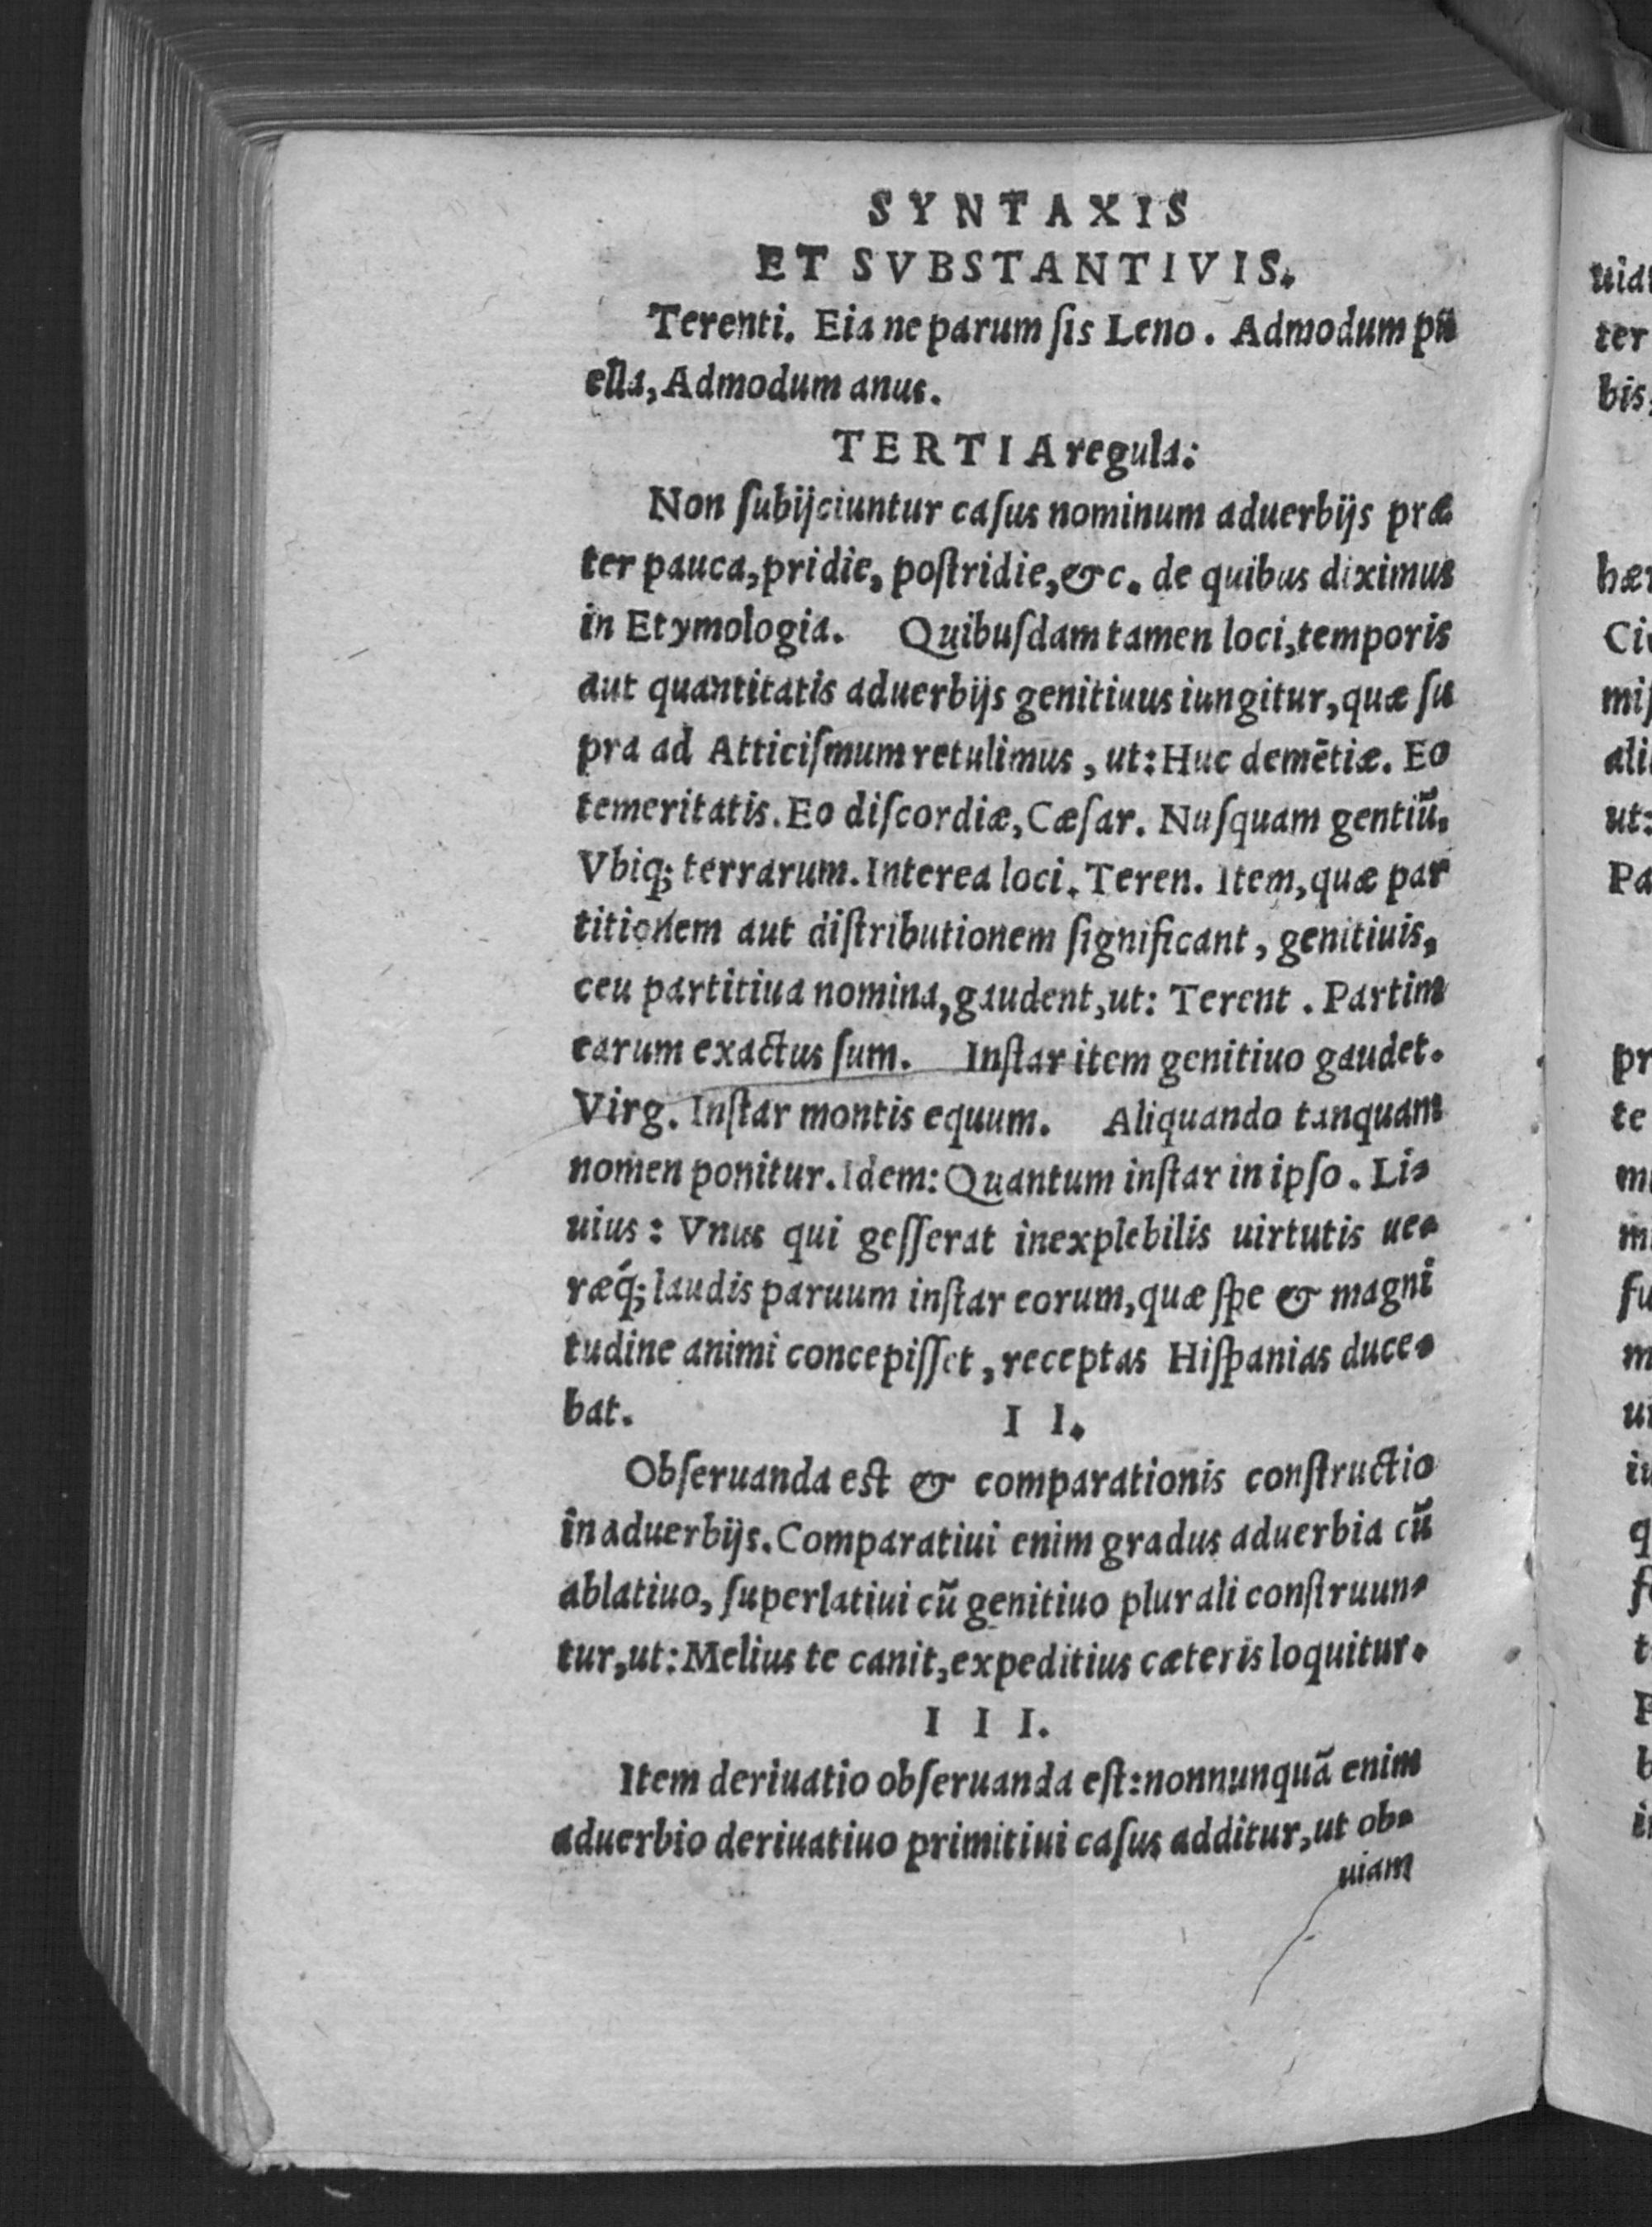 SYNTAXIS
ET SVBSTANTIVIS.
Terenti. Eia ne parum ſis Leno. Admodum pu
ella, Admodum anus.
TERTIA regula:
Non ſubijciuntur caſus nominum aduerbijs præ
ter pauca, pridie, poſtridie, &c. de quibus diximus
in Etymologia. Quibuſdam tamen loci, temporis
aut quantitatis aduerbijs genitiuus iungitur, quæ ſu
pra ad Atticiſmum retulimus, ut: Huc demētiæ. Eo
temeritatis. Eo diſcordiæ, Cæſar. Nuſquam gentiū,
Vbiq; terrarum. Interea loci. Teren. Item, quæ par
titionem aut diſtributionem ſignificant, genitiuis,
ceu partitiua nomina, gaudent, ut: Terent. Partim
earum exactus ſum. Inſtar item genitiuo gaudet.
Virg. Inſtar montis equum. Aliquando tanquam
nomen ponitur. Idem: Quantum inſtar in ipſo. Li-
uius: Vnus qui geſſerat inexplebilis uirtutis ue-
ræq́; laudis paruum inſtar eorum, quæ ſpe & magni
tudine animi concepiſſet, receptas Hiſpanias duce-
bat.
II.
Obſeruanda eſt & comparationis conſtructio
in aduerbijs. Comparatiui enim gradus aduerbia cū
ablatiuo, ſuperlatiui cū genitiuo plurali conſtruun-
tur, ut: Melius te canit, expeditius cæteris loquitur.
III.
Item deriuatio obſeruanda eſt: nonnunquā enim
aduerbio deriuatiuo primitiui caſus additur, ut ob-
uiam
uia
ter
bis,
Ci
ali
ut:
Pa
pr
te